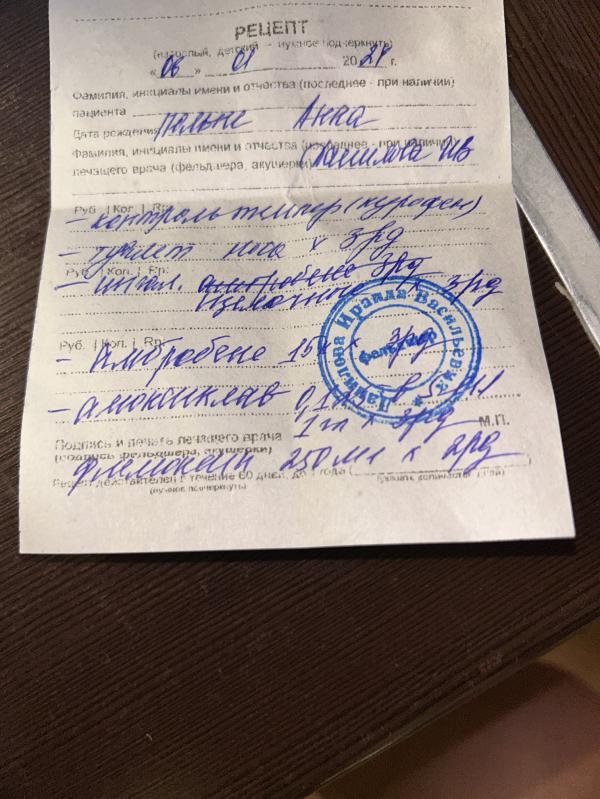 РЕЦЕПТ
(взрослый, детский - нужное подчеркнуть)
« 06 » 01 20 24 г.
Фамилия, инициалы имени и отчества (последнее - при наличии)
пациента
Дата рождения Анна
Фамилия, инициалы имени и отчества (последнее - при наличии)
лечащего врача (фельдшера, акушерки) Данилова ИВ
Руб. | Коп. | Rp:
- контроль темпер (нурофен)
- туалет носа х 3 р/д
Руб. | Коп. | Rp:
- ингал. амбробене 3р/д
х 3 р/д
Руб. | Коп. | Rp:
- Амбробене 15 х 3р/д
- амоксиклав
1 х 3р/д
М.П.
Подпись и печать лечащего врача
(подпись фельдшера, акушерки)
250 мг х 2р/д
Рецепт действителен в течение 60 дней, до 1 года (
(нужное подчеркнуть)
(указать количество
Данилова Ираида Васильевна
фельдшер